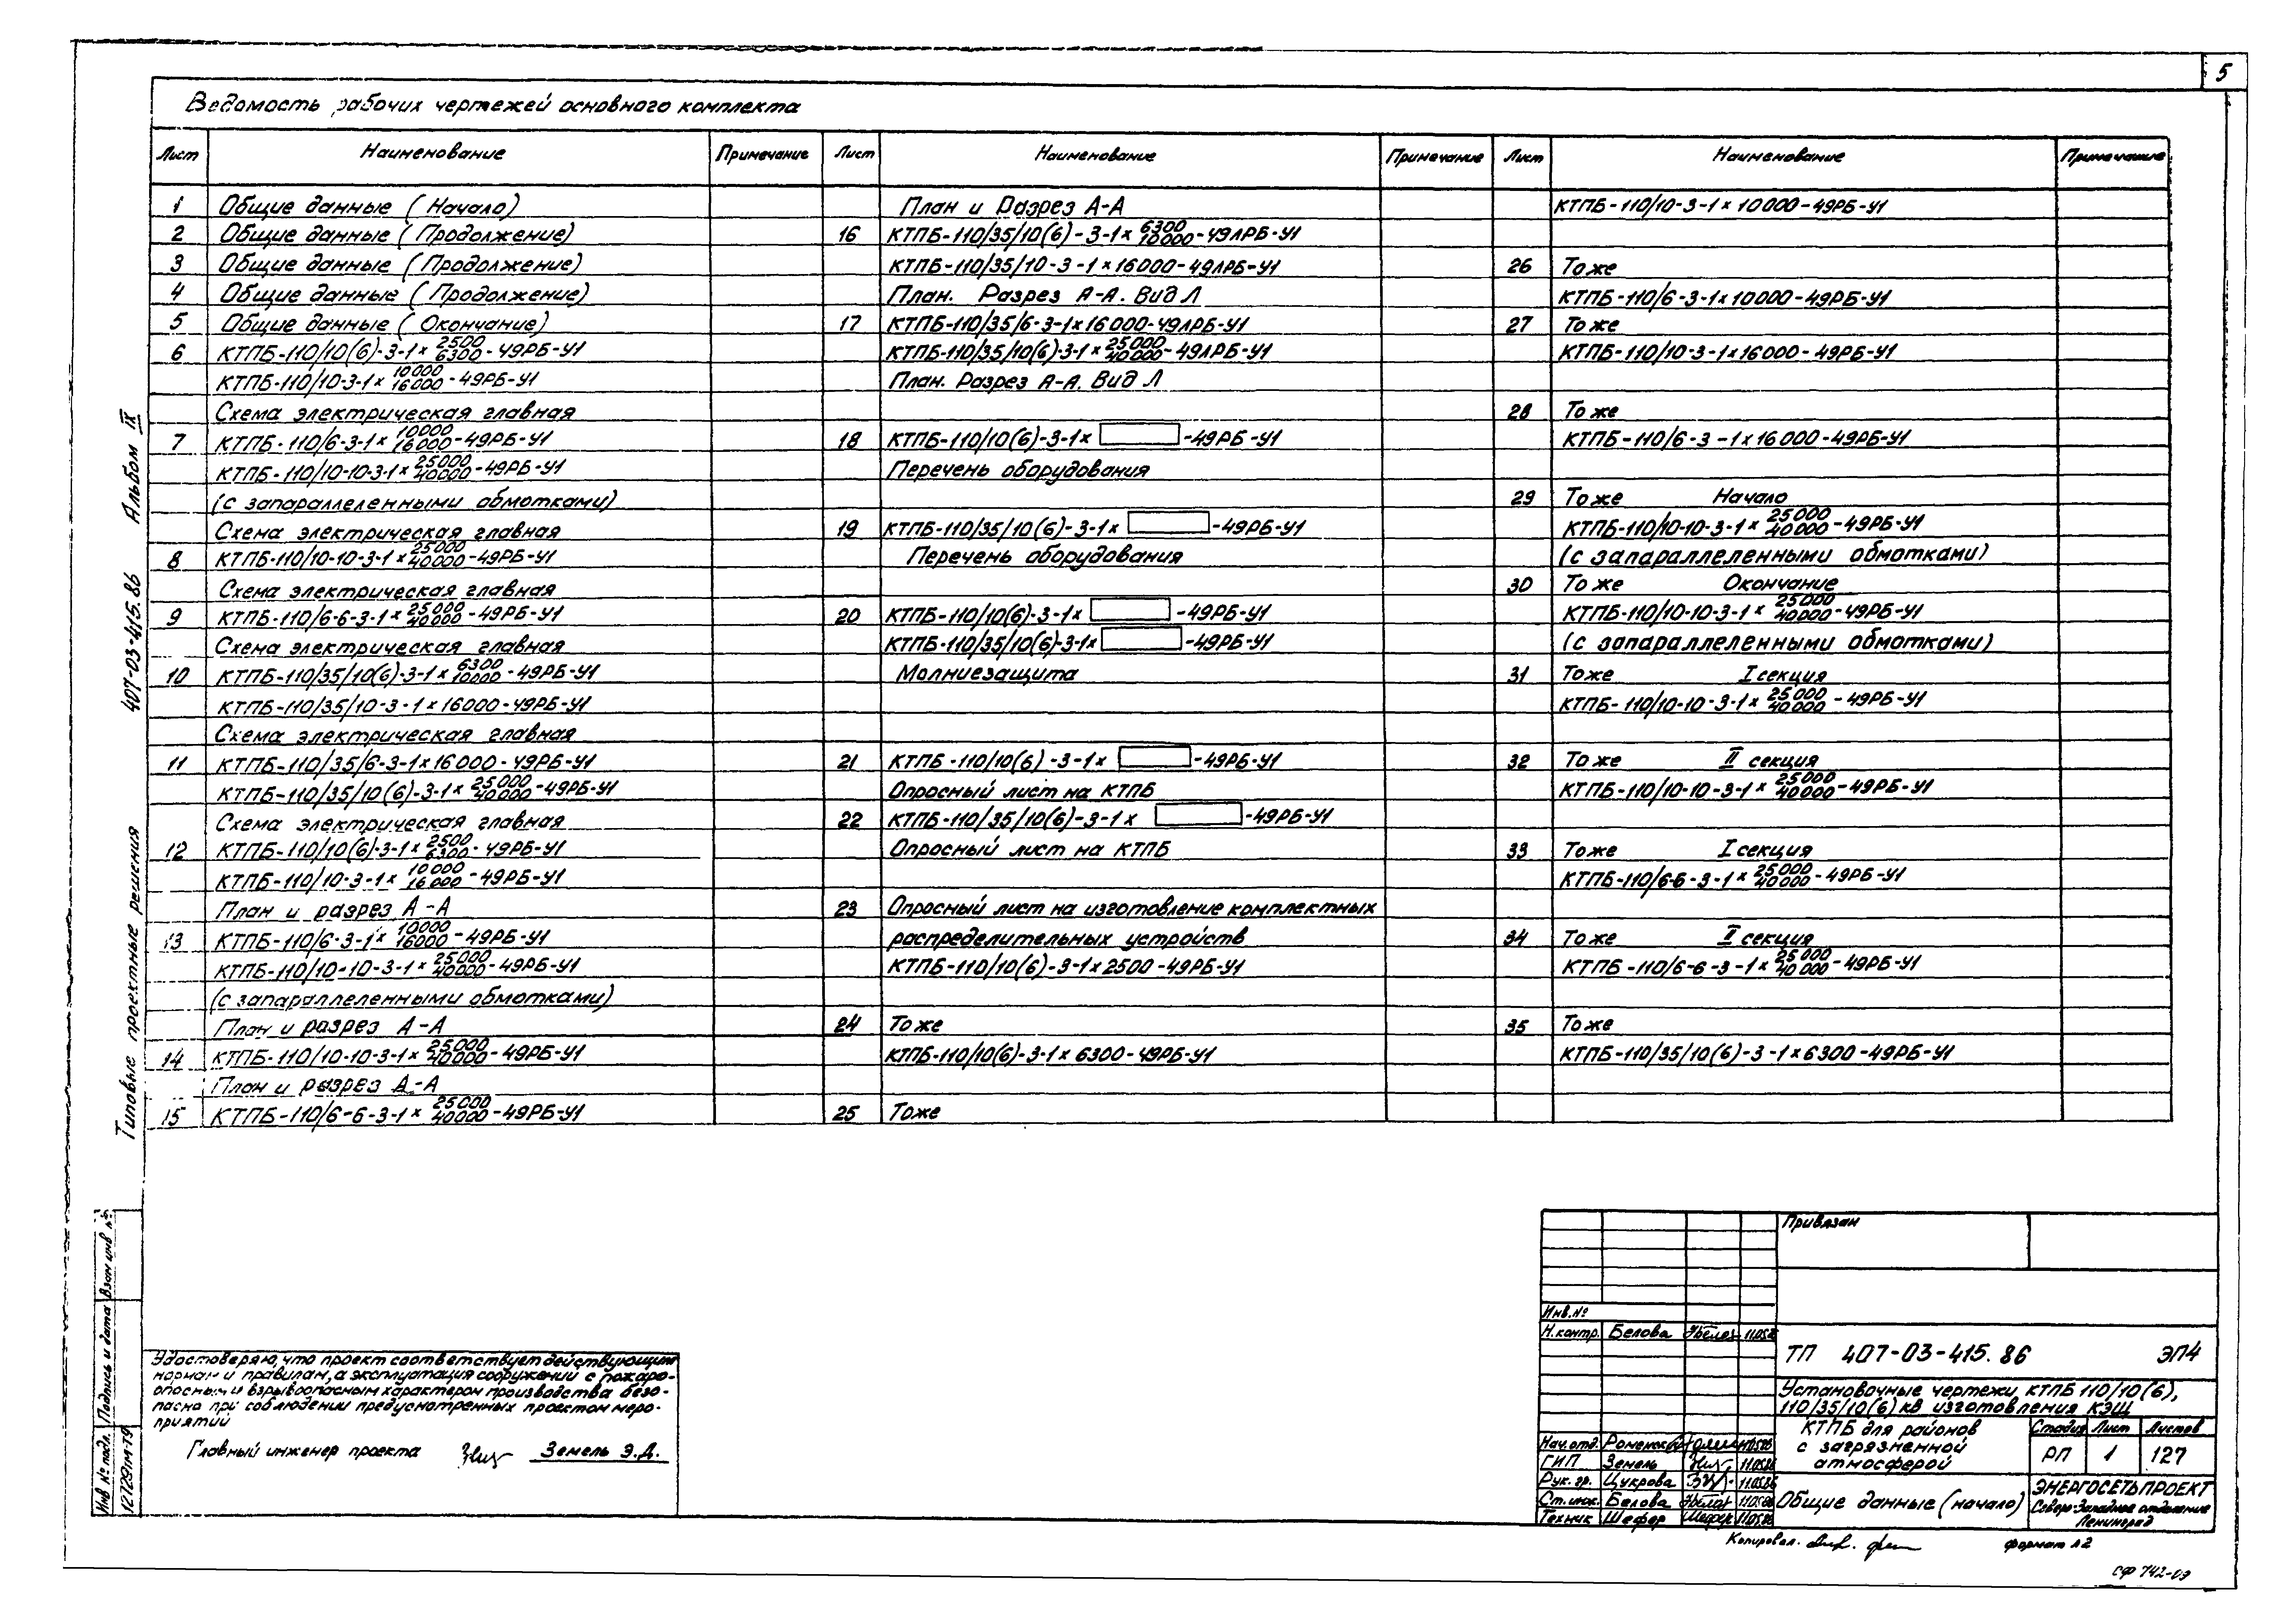 5
Ведомость рабочих чертежей основного комплекта
Лист Наименование Примечание
1 Общие данные (Начало)
2 Общие данные (Продолжение)
3 Общие данные (Продолжение)
4 Общие данные (Продолжение)
5 Общие данные (Окончание)
6 КТПБ-110/10(6)-3-1× 2500/6300 -49РБ-У1
КТПБ-110/10-3-1× 10000/16000 -49РБ-У1
Схема электрическая главная
7 КТПБ-110/6-3-1× 10000/16000 -49РБ-У1
КТПБ-110/10-10-3-1× 25000/40000 -49РБ-У1
(с запараллеленными обмотками)
Схема электрическая главная
8 КТПБ-110/10-10-3-1× 25000/40000 -49РБ-У1
Схема электрическая главная
9 КТПБ-110/6-6-3-1× 25000/40000 -49РБ-У1
Схема электрическая главная
10 КТПБ-110/35/10(6)-3-1× 6300/10000 -49РБ-У1
КТПБ-110/35/10-3-1×16000-49РБ-У1
Схема электрическая главная
11 КТПБ-110/35/6-3-1×16000-49РБ-У1
КТПБ-110/35/10(6)-3-1× 25000/40000 -49РБ-У1
Схема электрическая главная
12 КТПБ-110/10(6)-3-1× 2500/6300 -49РБ-У1
КТПБ-110/10-3-1× 10000/16000 -49РБ-У1
План и разрез А-А
13 КТПБ-110/6-3-1× 10000/16000 -49РБ-У1
КТПБ-110/10-10-3-1× 25000/40000 -49РБ-У1
(с запараллеленными обмотками)
План и разрез А-А
14 КТПБ-110/10-10-3-1× 25000/40000 -49РБ-У1
План и разрез А-А
15 КТПБ-110/6-6-3-1× 25000/40000 -49РБ-У1
Лист Наименование Примечание
План и Разрез А-А
16 КТПБ-110/35/10(6)-3-1× 6300/10000 -49ЛРБ-У1
КТПБ-110/35/10-3-1×16000-49ЛРБ-У1
План. Разрез А-А. Вид Л
17 КТПБ-110/35/6-3-1×16000-49ЛРБ-У1
КТПБ-110/35/10(6)-3-1× 25000/40000 -49ЛРБ-У1
План. Разрез А-А. Вид Л
18 КТПБ-110/10(6)-3-1× -49РБ-У1
Перечень оборудования
19 КТПБ-110/35/10(6)-3-1× -49РБ-У1
Перечень оборудования
20 КТПБ-110/10(6)-3-1× -49РБ-У1
КТПБ-110/35/10(6)-3-1× -49РБ-У1
Молниезащита
21 КТПБ-110/10(6)-3-1× -49РБ-У1
Опросный лист на КТПБ
22 КТПБ-110/35/10(6)-3-1× -49РБ-У1
Опросный лист на КТПБ
23 Опросный лист на изготовление комплектных
распределительных устройств
КТПБ-110/10(6)-3-1×2500-49РБ-У1
24 То же
КТПБ-110/10(6)-3-1×6300-49РБ-У1
25 То же
Лист Наименование Примечание
КТПБ-110/10-3-1×10000-49РБ-У1
26 То же
КТПБ-110/6-3-1×10000-49РБ-У1
27 То же
КТПБ-110/10-3-1×16000-49РБ-У1
28 То же
КТПБ-110/6-3-1×16000-49РБ-У1
29 То же Начало
КТПБ-110/10-10-3-1× 25000/40000 -49РБ-У1
(с запараллеленными обмотками)
30 То же Окончание
КТПБ-110/10-10-3-1× 25000/40000 -49РБ-У1
(с запараллеленными обмотками)
31 То же I секция
КТПБ-110/10-10-3-1× 25000/40000 -49РБ-У1
32 То же II секция
КТПБ-110/10-10-3-1× 25000/40000 -49РБ-У1
33 То же I секция
КТПБ-110/6-6-3-1× 25000/40000 -49РБ-У1
34 То же II секция
КТПБ-110/6-6-3-1× 25000/40000 -49РБ-У1
35 То же
КТПБ-110/35/10(6)-3-1×6300-49РБ-У1
Типовые проектные решения 407-03-415.86 Альбом IX
Инв № подл. Подпись и дата Взам инв №
12729тм-т9
Удостоверяю, что проект соответствует действующим
нормам и правилам, а эксплуатация сооружений с пожаро-
опасным и взрывоопасным характером производства безо-
пасна при соблюдении предусмотренных проектом меро-
приятий
Главный инженер проекта Земель Э.Д.
Привязан
Инв.№
Н.контр. Белова 11.05.86
ТП 407-03-415.86 ЭП4
Установочные чертежи КТПБ 110/10(6),
110/35/10(6) кВ изготовления КЭЩ
КТПБ для районов
с загрязненной
атмосферой
Стадия Лист Листов
РП 1 127
Нач.отд. Роменский 11.05.86
ГИП Земель 11.05.86
Рук. гр. Цукрова 11.05.86
Ст.инж. Белова 11.05.86
Техник Шефер 11.05.86
Общие данные (начало)
ЭНЕРГОСЕТЬПРОЕКТ
Северо-Западное отделение
Ленинград
Копировал. формат А2
СФ 742-09